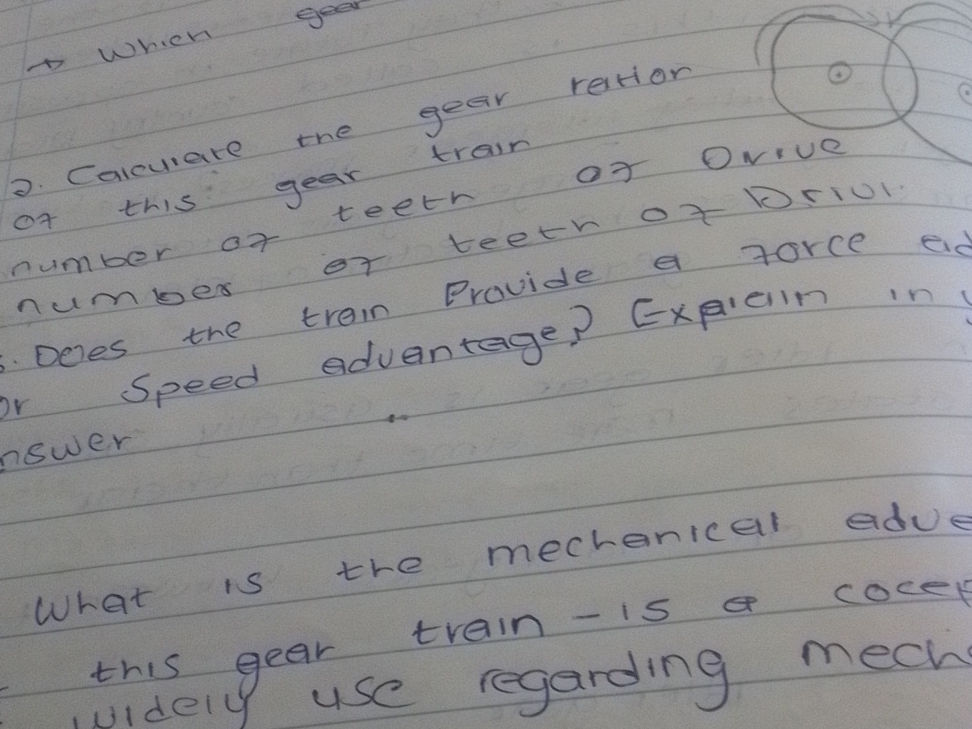 → Which gear
2. Calculate the gear ration
of this gear train
number of teeth of Drive
number of teeth of Driv
3. Does the train Provide a force ad
or Speed advantage? Explain in y
nswer
What is the mechanical adve
this gear train - is a cocep
widely use regarding mech